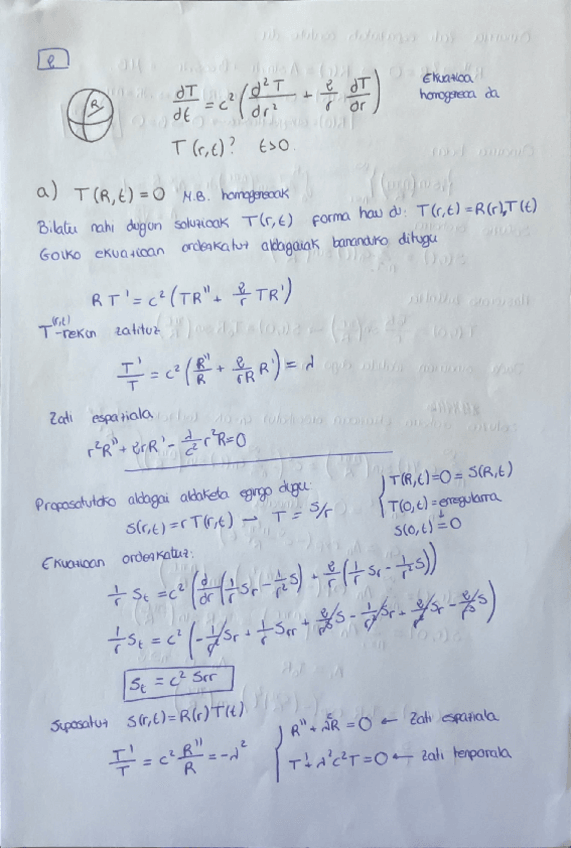 2
R
dT/dt = c² ( d²T/dr² + 2/r dT/dr ) Ekuazioa homogeneoa da
T(r,t)? t>0.
a) T(R,t) = 0 M.B. homogeneoak
Bilatu nahi dugun soluzioak T(r,t) forma hau du: T(r,t) = R(r)T(t)
Goiko ekuazioan ordezkatuz aldagaiak bananduko ditugu
R T' = c² (TR'' + 2/r TR')
T(r,t)-rekin zatituz
T'/T = c² ( R''/R + 2/rR R' ) = λ
Zati espaziala
r²R'' + 2rR' - λ/c² r²R = 0
Proposatutako aldagai aldaketa egingo dugu:
S(r,t) = r T(r,t) → T = S/r
T(R,t) = 0 = S(R,t)
T(0,t) = erregularra
↓
S(0,t) = 0
Ekuazioan ordezkatuz:
1/r St = c² ( d/dr ( 1/r Sr - 1/r² S ) + 2/r ( 1/r Sr - 1/r² S ) )
1/r St = c² ( - 1/r² Sr + 1/r Srr + 2/r³ S - 1/r² Sr + 2/r² Sr - 2/r³ S )
St = c² Srr
Suposatuz S(r,t) = R(r)T(t)
T'/T = c² R''/R = -λ²
R'' + λ²R = 0 ← Zati espaziala
T' + λ²c²T = 0 ← Zati tenporala